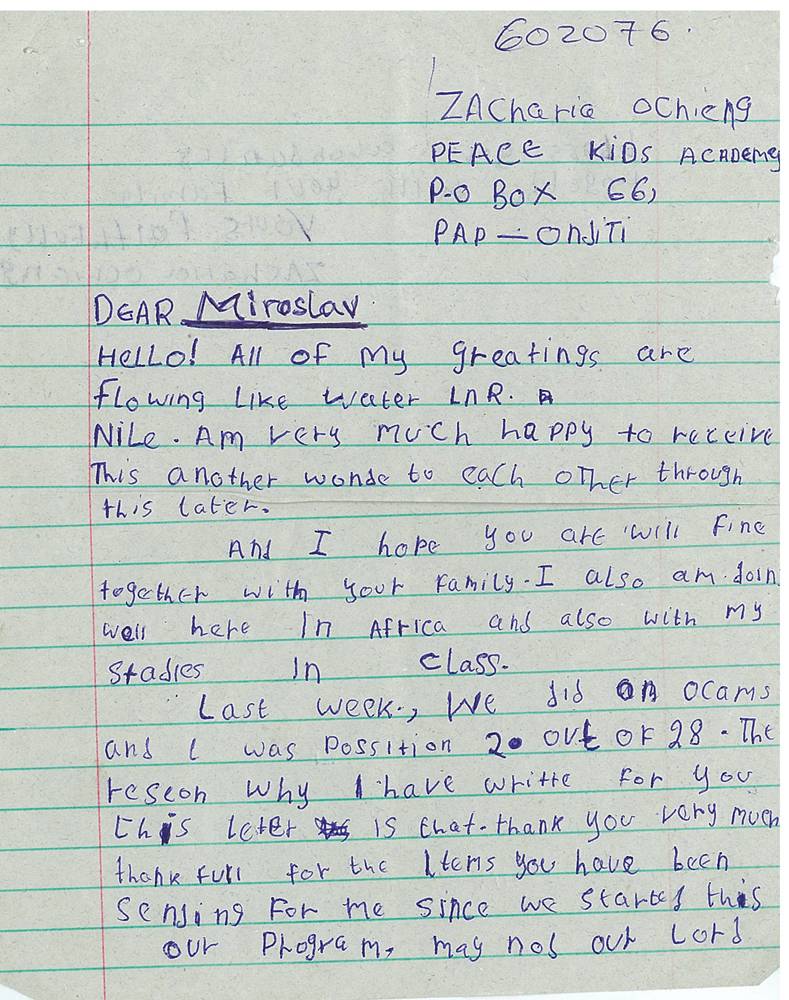 602076.
ZACharia OChieng
PEACE KiDS ACADEMY
P-O BOX 66,
PAP — ONdITI
DEAR Miroslav
HELLO! All OF my greatings are
flowing like water In R.
NiLe. Am very much happy to receive
This another wonde to each other through
this later.
And I hope you are will fine
together with your Family. I also am doin
well here In Africa and also with my
stadies In class.
Last week, We did an ocams
and I was possition 20 out of 28. The
reseon why I have writte for you
this leter is that thank you very much
thank full for the Items you have been
sending for me since we started this
our Program, may nod our Lord